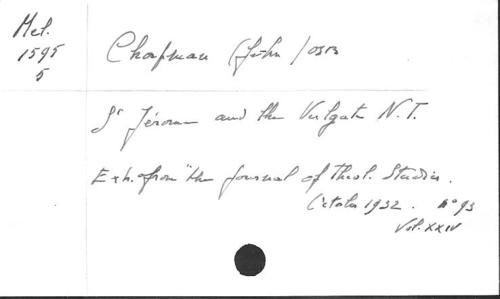 Mel.
1595
5
Chapman (John) OSB
St Jérome and the Vulgate N.T.
Extr. from "the Journal of Theol. Studies.
October 1922. n° 93
Vol. XXIV